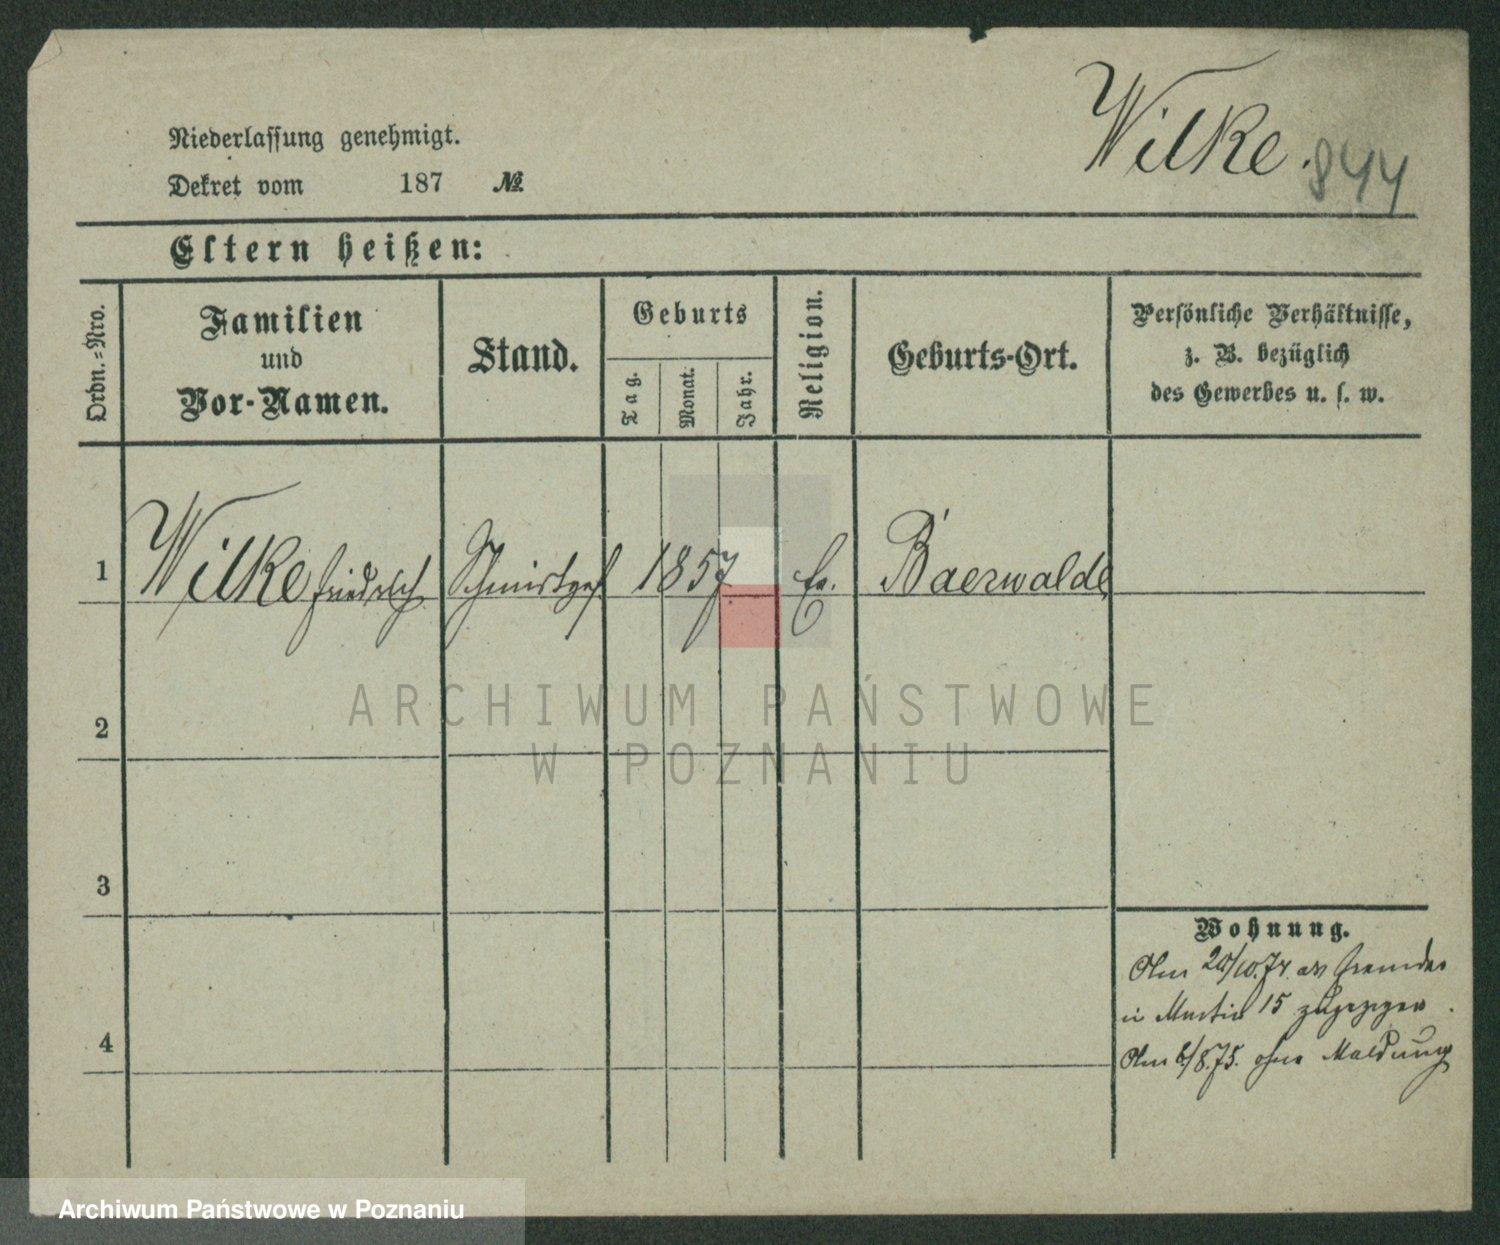 Wilke. 844
Niederlassung genehmigt.
Dekret vom 187 №
Eltern heißen:
Ordn.=Nro.
Familien
und
Vor-Namen.
Stand.
Geburts
Tag.
Monat.
Jahr.
Religion.
Geburts-Ort.
Persönliche Verhältnisse,
z. B. bezüglich
des Gewerbes u. s. w.
1 Wilke Friedrich Schmidtges 1857 Ev. Baerwalde
2
3
4
Wohnung.
Am 20/10.74 als Fremder
in Martin 15 zugezogen
Am 6/8.75. ohne Meldung
ARCHIWUM PAŃSTWOWE
W POZNANIU
Archiwum Państwowe w Poznaniu